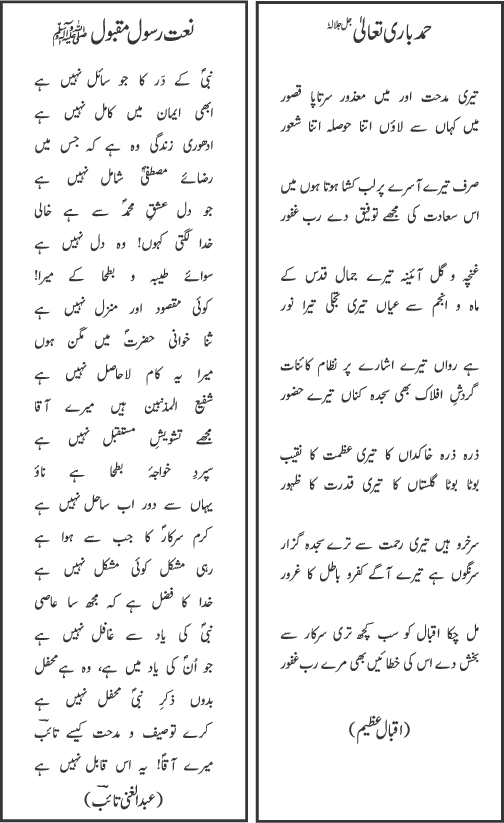 حمد باری تعالیٰ جل جلالہٗ
تیری مدحت اور میں معذور سرتاپا قصور
میں کہاں سے لاؤں اتنا حوصلہ اتنا شعور
صرف تیرے آسرے پر لب کشا ہوتا ہوں میں
اس سعادت کی مجھے توفیق دے رب غفور
غنچہ و گل آئینہ تیرے جمال قدس کے
ماہ و انجم سے عیاں تیری تجلی تیرا نور
ہے رواں تیرے اشارے پر نظام کائنات
گردشِ افلاک بھی سجدہ کناں تیرے حضور
ذرہ ذرہ خاکداں کا تیری عظمت کا نقیب
بوٹا بوٹا گلستاں کا تیری قدرت کا ظہور
سرخرو ہیں تیری رحمت سے ترے سجدہ گزار
سرنگوں ہے تیرے آگے کفرو باطل کا غرور
مل چکا اقبال کو سب کچھ تری سرکار سے
بخش دے اس کی خطائیں بھی مرے رب غفور
(اقبال عظیم)
نعت رسول مقبول ﷺ
نبیؐ کے دَر کا جو سائل نہیں ہے
ابھی ایمان میں کامل نہیں ہے
ادھوری زندگی وہ ہے کہ جس میں
رضائے مصطفیؐ شامل نہیں ہے
جو دل عشقِ محمدؐ سے ہے خالی
خدا لگتی کہوں! وہ دل نہیں ہے
سوائے طیبہ و بطحا کے میرا!
کوئی مقصود اور منزل نہیں ہے
ثنا خوانی حضرتؐ میں مگن ہوں
میرا یہ کام لاحاصل نہیں ہے
شفیع المذنبین ہیں میرے آقا
مجھے تشویشِ مستقبل نہیں ہے
سپردِ خواجۂ بطحا ہے ناؤ
یہاں سے دور اب ساحل نہیں ہے
کرم سرکارؐ کا جب سے ہوا ہے
رہی مشکل کوئی مشکل نہیں ہے
خدا کا فضل ہے کہ مجھ سا عاصی
نبیؐ کی یاد سے غافل نہیں ہے
جو اُنؐ کی یاد میں ہے، وہ ہے محفل
بدوں ذکرِ نبیؐ محفل نہیں ہے
کرے توصیف و مدحت کیسے تائبؔ
میرے آقاؐ! یہ اس قابل نہیں ہے
(عبدالغنی تائبؔ)